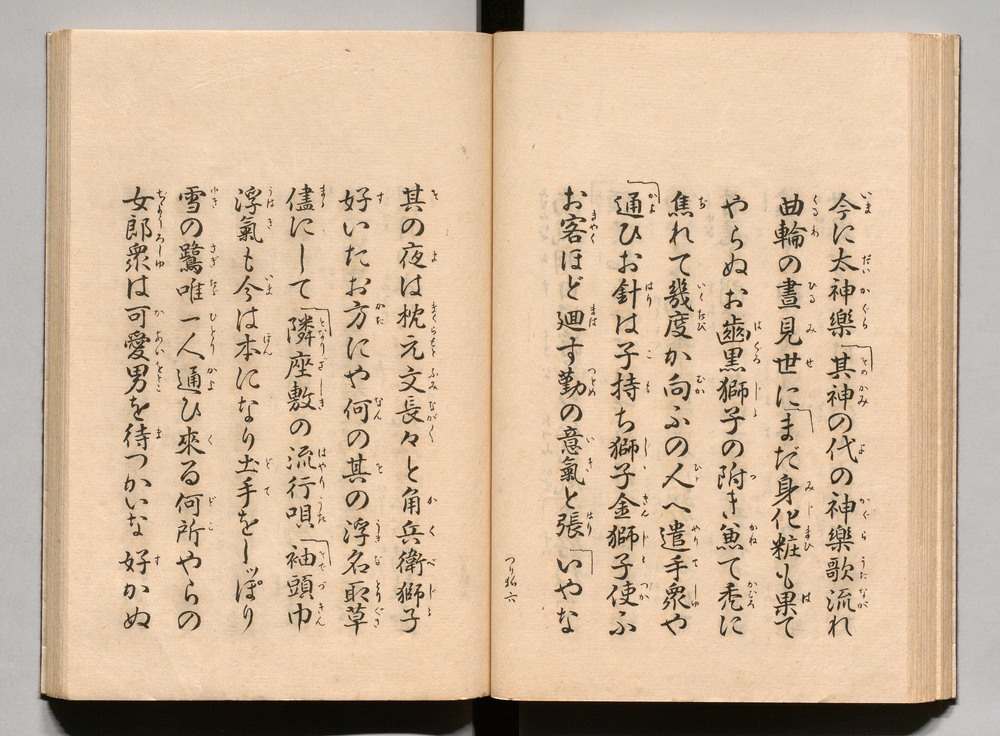 今に太神樂「其神の代の神樂歌流れ
曲輪の晝見世に「まだ身化粧も果て
やらぬお齒黒獅子の附き魚て禿に
焦れて幾度か向ふの人へ遣手衆や
「通ひお針は子持ち獅子金獅子使ふ
お客ほど廻す勤の意氣と張「いやな
つり狐 六
其の夜は枕元文長々と角兵衛獅子
好いたお方にや何の其の浮名取草
儘にして「隣座敷の流行唄「袖頭巾
浮氣も今は本になり土手をしッぽり
雪の鷺唯一人通ひ來る何所やらの
女郎衆は可愛男を待つかいな 好かぬ